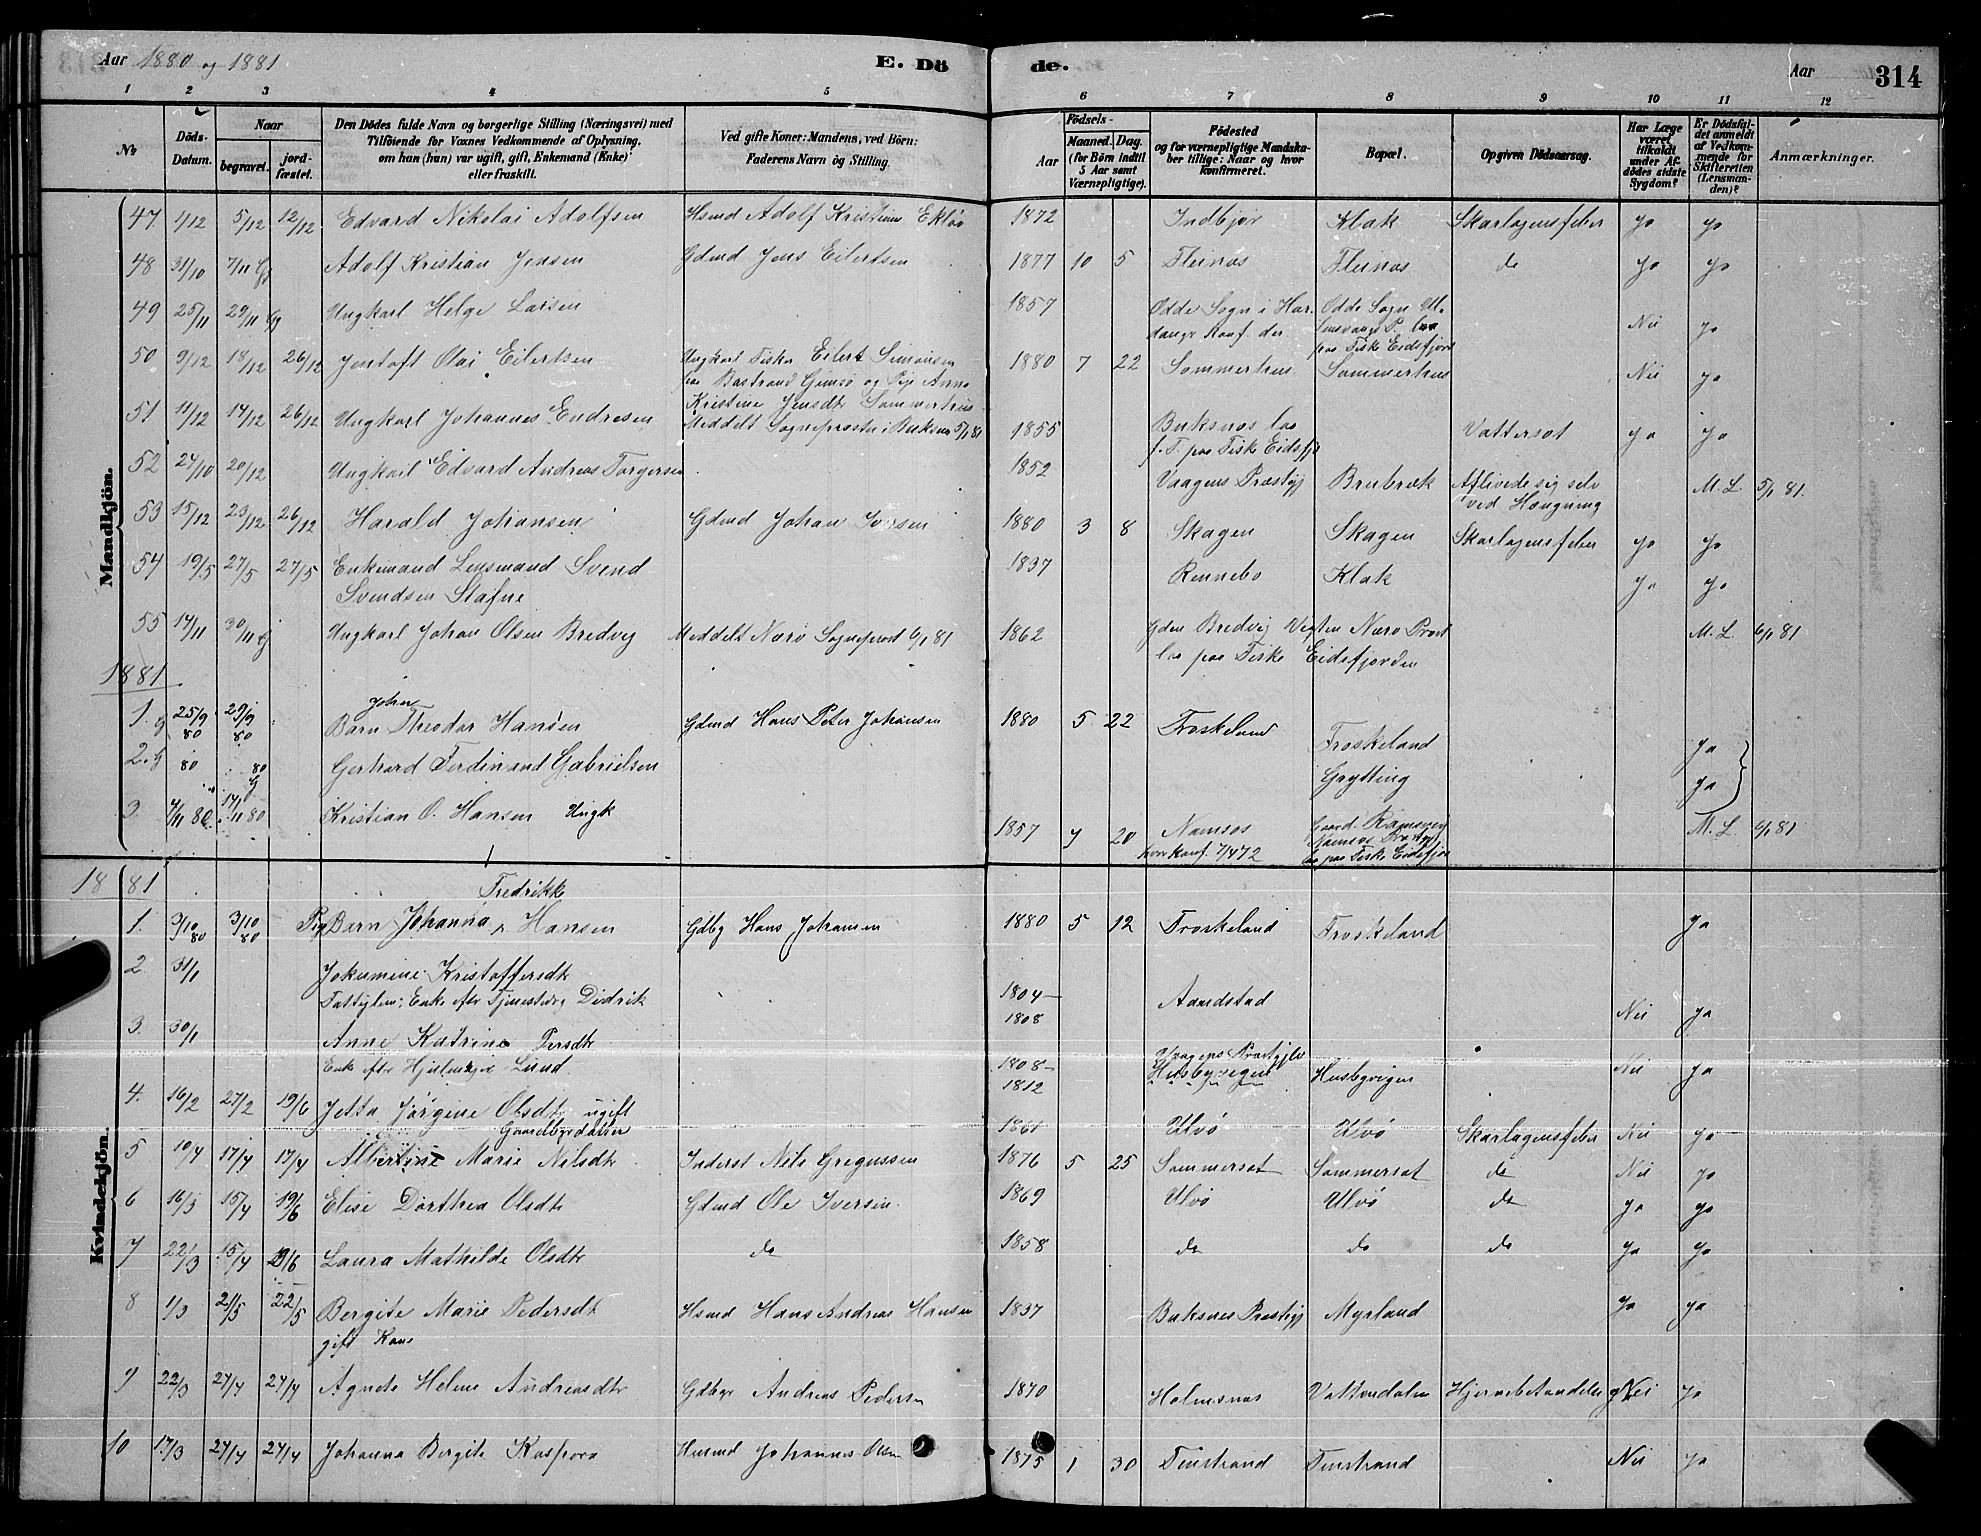 Aar 1880 og 1881 E. Dö de. Aar 314
1 2 3 4 5 6 7 8 9 10 11 12
No Döds-Datum. Naar begravet. jordfæstet. Den Dödes fulde Navn og borgerlige Stilling (Næringsvei) med Tilföiende for Voxnes Vedkommende af Oplysning, om han (hun) var ugift, gift, Enkemand (Enke) eller fraskilt. Ved gifte Koner: Mandens, ved Börn: Faderens Navn og Stilling. Födsels- Aar Maaned. Dag. (for Börn indtil 5 Aar samt Værnepligtige). Födested og for værnepligtige Mandskaber tillige: Naar og hvor konfirmeret. Bopæl. Opgiven Dödsaarsag. Har Læge været tilkaldt under Afdödes sidste Sygdom? Er Dödsfaldet anmeldt af Vedkommende for Skifteretten (Lensmanden)? Anmærkninger.
Mandkjön.
47. 1/12 5/12 12/12 Edvard Nikolai Adolfsen Hsmd Adolf Kristians Ekløv 1872 Indbjør Klak Skarlagensfeber Ja Ja
48 31/10 7/11 G Adolf Kristian Jensen Gdmd Jens Eilertsen 1877 10 5 Fleinas Fleinas do Ja Ja
49 25/11 29/11 G Ungkarl Helge Larsen 1857 Odde Sogn i Har- Odde Sogn Ul-
danger Konf. der lensvangs P. laa Nei Ja
paa Fiske Eidsfjord
50 9/12 18/12 26/12 Jentoft Olai Eilertsen Ungkarl Fisker Eilert Simonsen 1880 7 22 Sommerhus Sommerhus Nei Ja
paa Bastrand Gimsø og Pige Anna
Kristine Jensdtr Sommerhus
51 11/12 14/12 26/12 Ungkarl Johannes Endresen Meddelt Sognepresten i Buksnes 5/1 81 1855 Buksnes laa Vattersot Ja Ja
f. T. paa Fiske Eidsfj
52 24/10 20/12 Ungkarl Edvard Andreas Torgersen 1852 Vaagens Præstgj Brubræk Aflivede sig selv M. L. 5/1 81.
ved Hængning
53 15/12 23/12 26/12 Harald Johansen Gdmd Johan Iversen 1880 3 8 Skagen Skagen Skarlagensfeber Ja Ja
54 19/5 27/5 27/5 Enkemand Lensmand Svend 1837 Rennebo Klak Ja Ja
Svendsen Stafne
55 14/11 30/11 G Ungkarl Johan Olsen Bredvig Meddelt Nærø Sogneprest 6/1 81 1862 Gden Bredvig Vigten Nærø Præst M. L. 6/1 81
laa paa Fiske Eidsfjorden
1881
Johan
1. g 25/9 80 29/9 80 Barn Theodor Hansen Gdmd Hans Peter Johansen 1880 5 22 Froskeland Froskeland Ja
2. g 80 80 G Gerhard Ferdinand Gabrielsen Grytting Ja
3. 4/11 80 14/11 80 Kristian O. Hansen Ungk 1857 7 20 Namsos M. L. 6/1 81
hvor konf. 7/4 72 laa paa Fiske Eidsfjor
1881
Kvindekjön.
Fredrikke
1. 3/10 80 3/10 80 Pige Barn Johanna Hansen Gdbg Hans Johansen 1880 5 12 Froskeland Froskeland Ja
2 31/1 Jokumine Kristoffersdtr
Fattiglem: Enke efter Didrik 1804- 1808 Aandstad Nei Ja
3. 30/1 Anne Katrine Persdtr
Enke efter Lund 1808- 1812 Vaagens Præstgjeld Husbyvigen Husbyvigen Nei Ja
4. 16/2 27/2 19/6 Jetta Jørgine Olsdtr ugift 1861 Ulvø Ulvø Skarlagensfeber Nei Ja
Gaardbrgdatter
5 10/4 17/4 17/4 Albertine Marie Nilsdtr Inderst Nils Gregussen 1876 5 25 Sommersæt Sommersæt do Nei Ja
6 16/3 15/4 19/6 Elise Dorthea Olsdtr Gdmd Ole Iversen. 1869 Ulvø Ulvø do Ja Ja
7 22/3 15/4 19/6 Laura Mathilde Olsdtr do 1858 do do do Ja Ja
8 1/3 21/5 22/5 Bergite Marie Pedersdt Hsmd Hans Andreas Hansen 1837 Buksnes Præstgj Myrland Ja Ja
gift Kone
9 22/3 24/4 24/4 Agnete Helene Andreasdtr Gdbgr Andreas Pedersen 1870 Holmsnes Vottendalen Hjernebetændelse Nei Ja
10 17/3 24/4 24/4 Johanna Bergite Kaspara Husmd Johannes Olsen 1875 1 30 Finstrand Finstrand Nei Ja